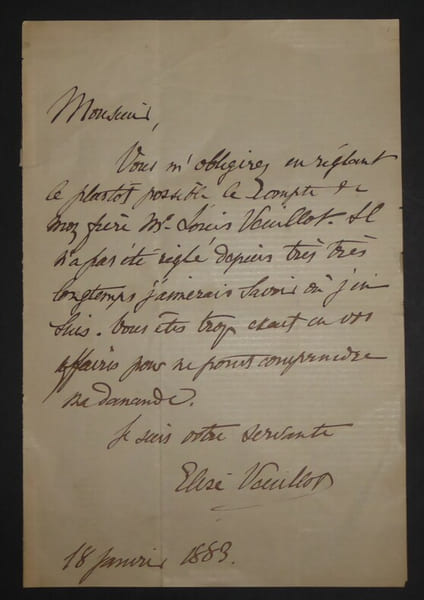 Monsieur,
Vous m'obligerez en réglant
le plustot possible le compte de
mon frère Mr. Louis Veuillot. Il
n'a pas été réglé depuis très très
longtemps j'aimerais savoir où j'en
suis. Vous êtes trop exact en vos
affaires pour ne point comprendre
ma demande.
Je suis votre servante
Elise Veuillot
18 janvier 1883.